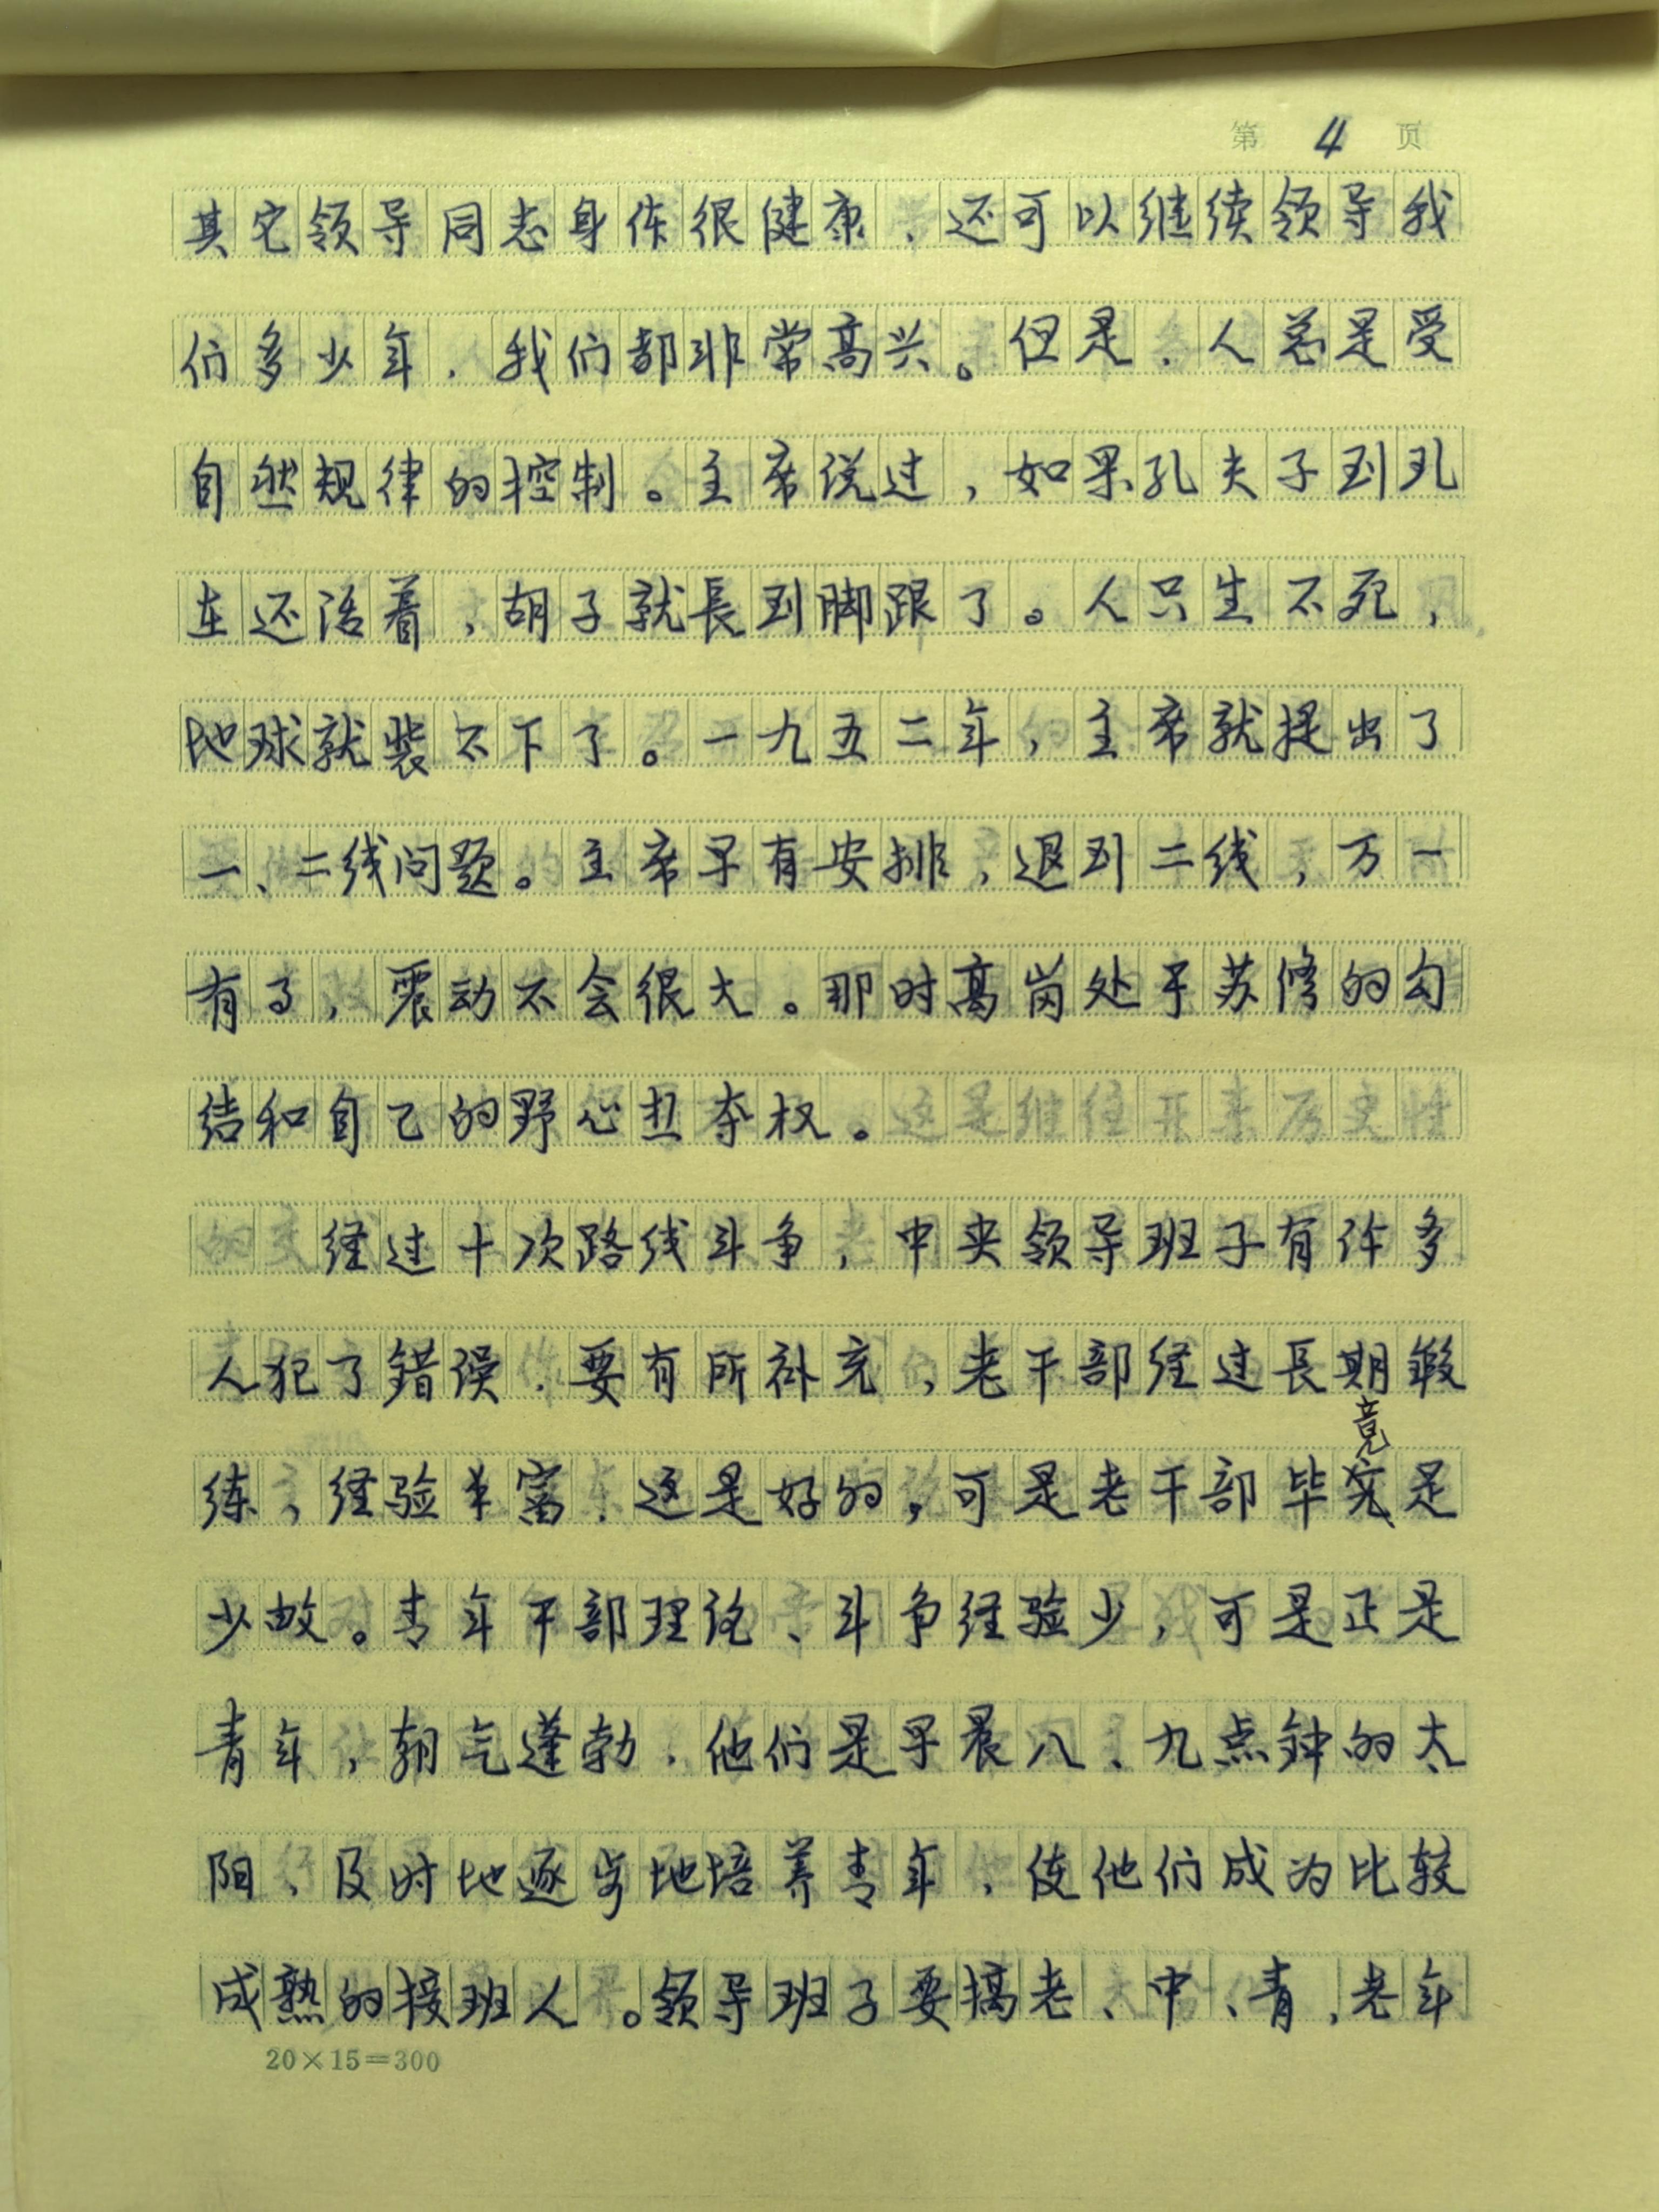 第 4 页
其它领导同志身体很健康，还可以继续领导我
们多少年，我们都非常高兴。但是，人总是受
自然规律的控制。主席说过，如果孔夫子到现
在还活着，胡子就長到脚跟了。人只生不死，
地球就装不下了。一九五二年，主席就提出了
一、二线问题。主席早有安排，退到二线，万一
有了，震动不会很大。那时高岗处于苏修的勾
结和自己的野心想夺权。
经过十次路线斗争，中央领导班子有许多
人犯了错误，要有所补充，老干部经过長期锻
竟
练，经验丰富，这是好的。可是老干部毕究是
少数。青年干部理论、斗争经验少，可是正是
青年，朝气蓬勃，他们是早晨八、九点钟的太
阳，及时地逐步地培养青年，使他们成为比较
成熟的接班人。领导班子要搞老、中、青，老年
20×15=300